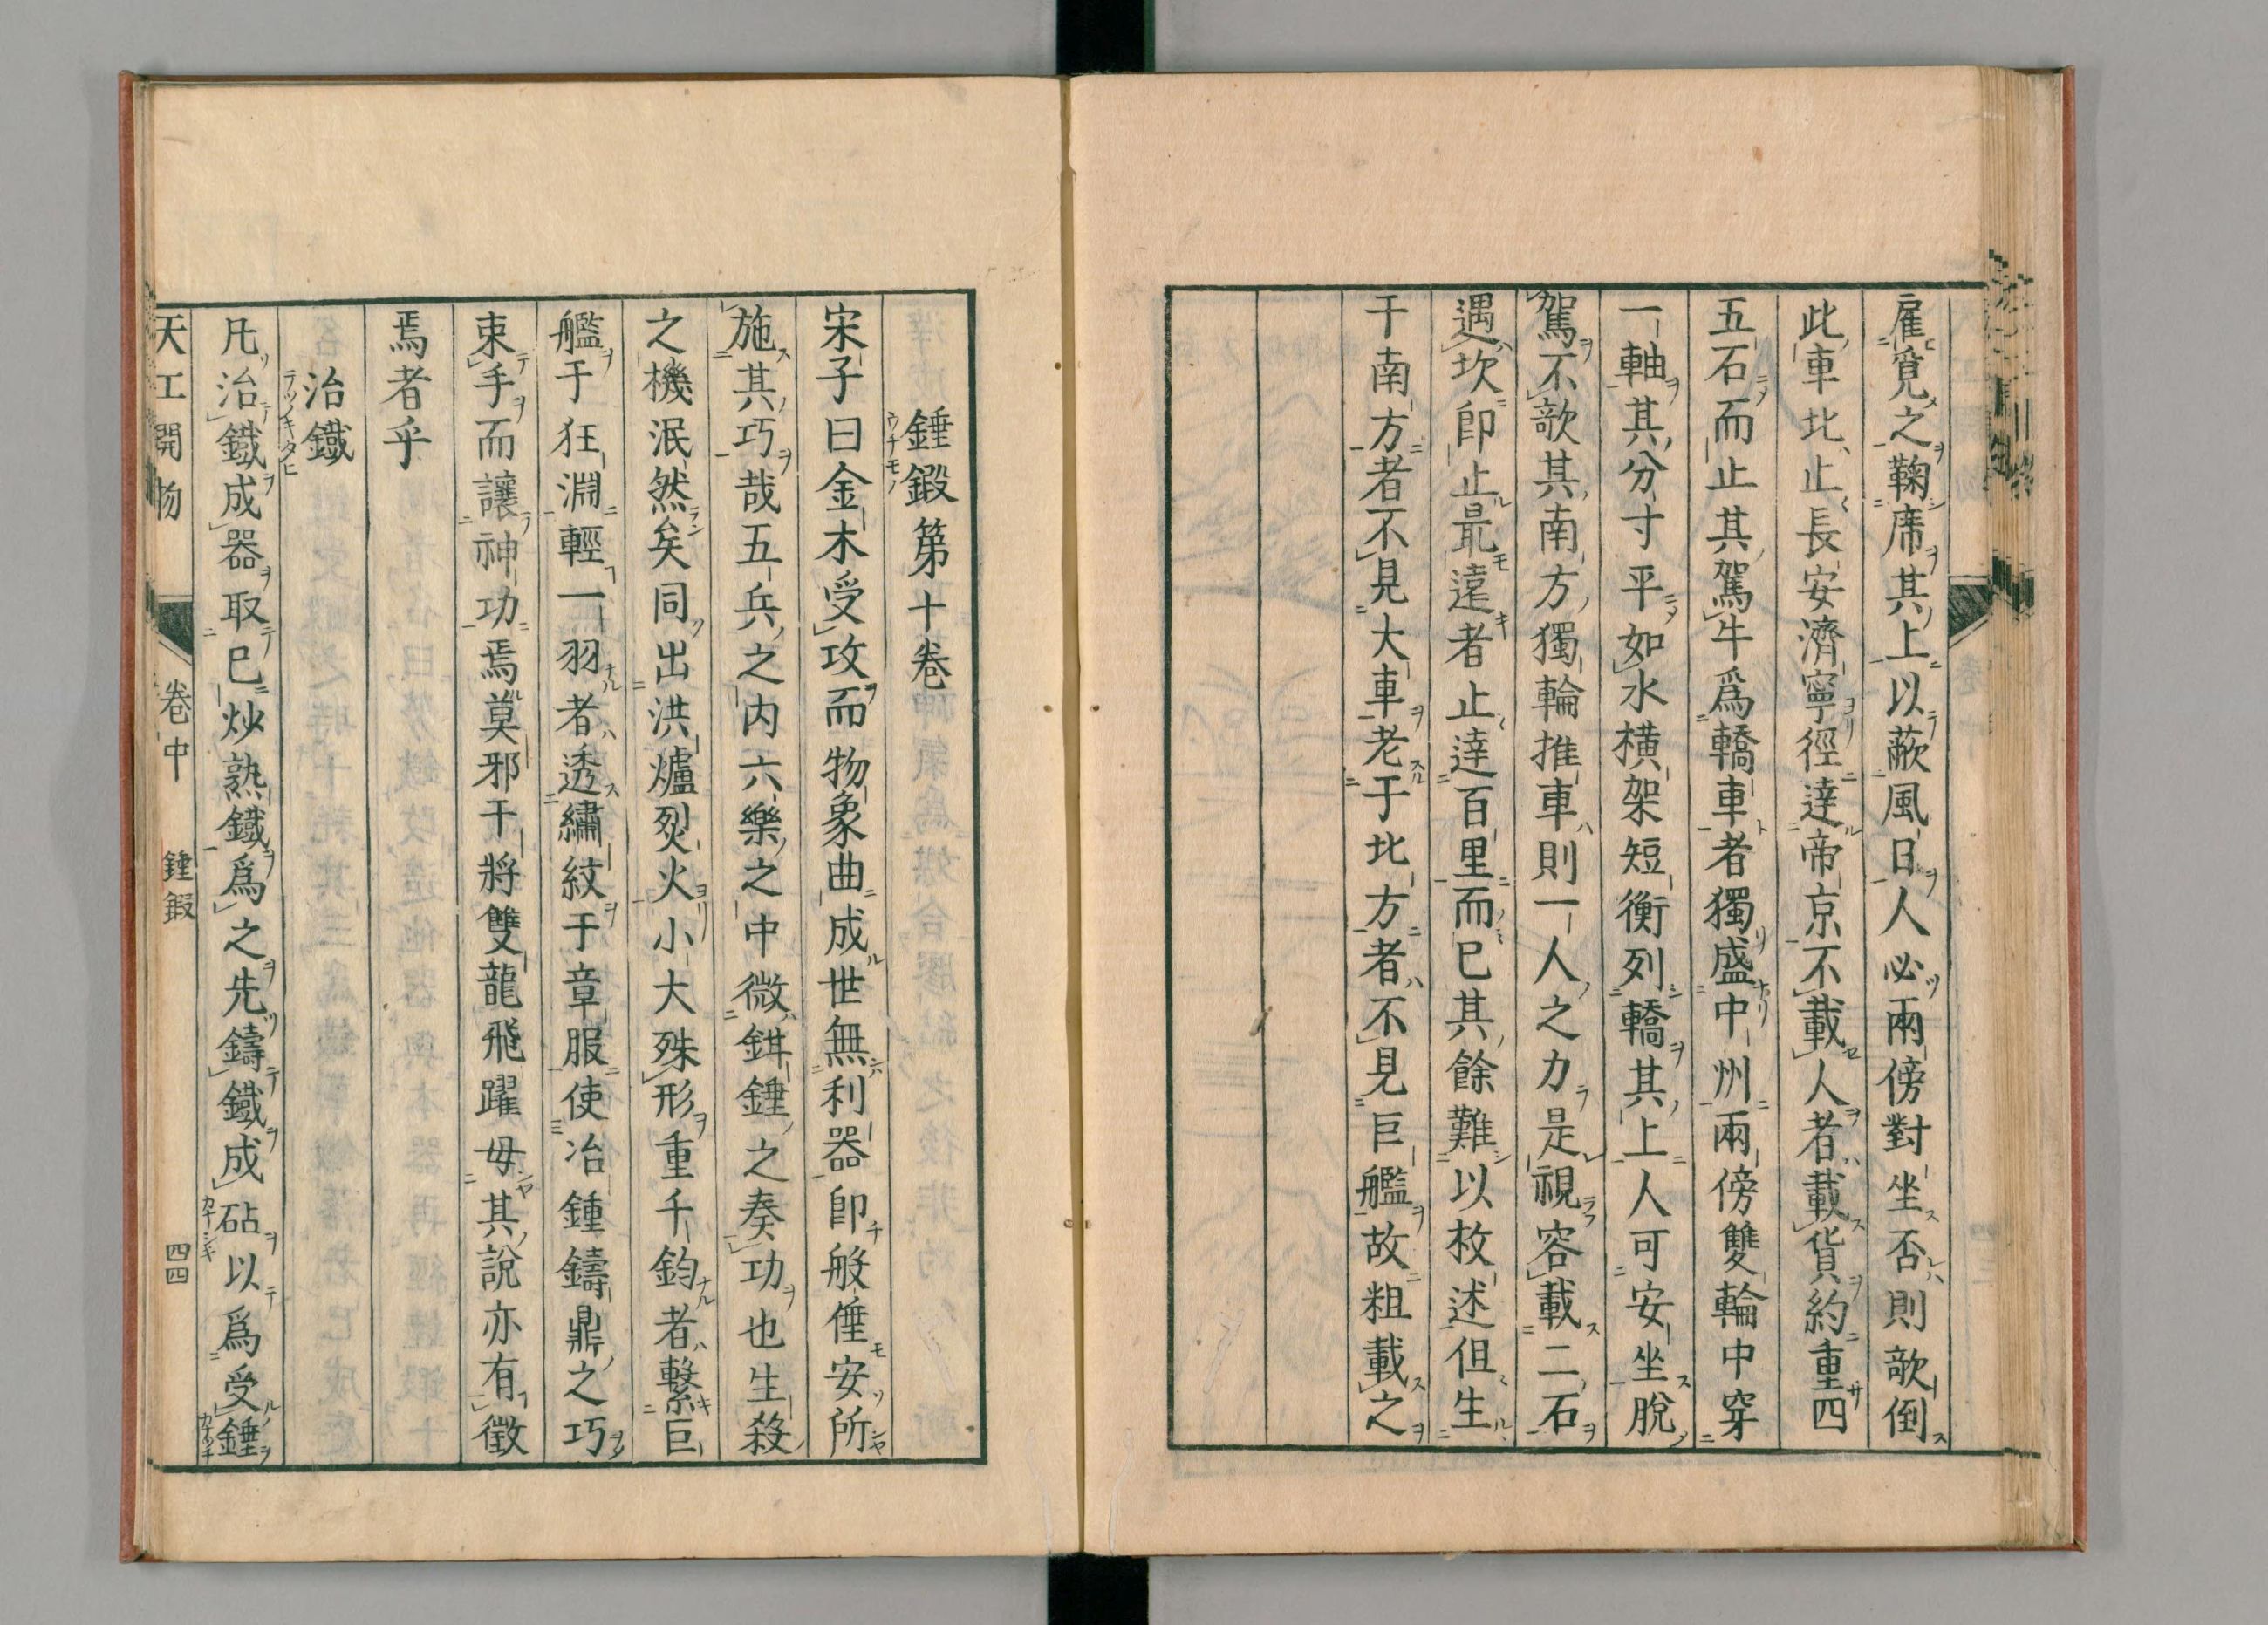 雇覓之鞠席其上以蔽風日人必兩傍對坐否則欹倒
此車北止長安濟寧徑達帝京不載人者載貨約重四
五石而止其駕牛爲轎車者獨盛中州兩傍雙輪中穿
一軸其分寸平如水橫架短衡列轎其上人可安坐脫
駕不欹其南方獨輪推車則一人之力是視容載二石
遇坎卽止最遠者止達百里而已其餘難以枚述但生
于南方者不見大車老于北方者不見巨艦故粗載之
錘鍛第十卷
宋子曰金木受攻而物象曲成世無利器卽般倕安所
施其巧哉五兵之内六樂之中微鉗錘之奏功也生殺
之機泯然矣同出洪爐烈火小大殊形重千鈞者繫巨
艦于狂淵輕一羽者透繡紋于章服使冶鍾鑄鼎之巧
束手而讓神功焉莫邪干將雙龍飛躍毋其說亦有徵
焉者乎
治鐵
凡治鐵成器取已炒熟鐵爲之先鑄鐵成砧以爲受錘
天工開物 卷中 錘鍛 四四